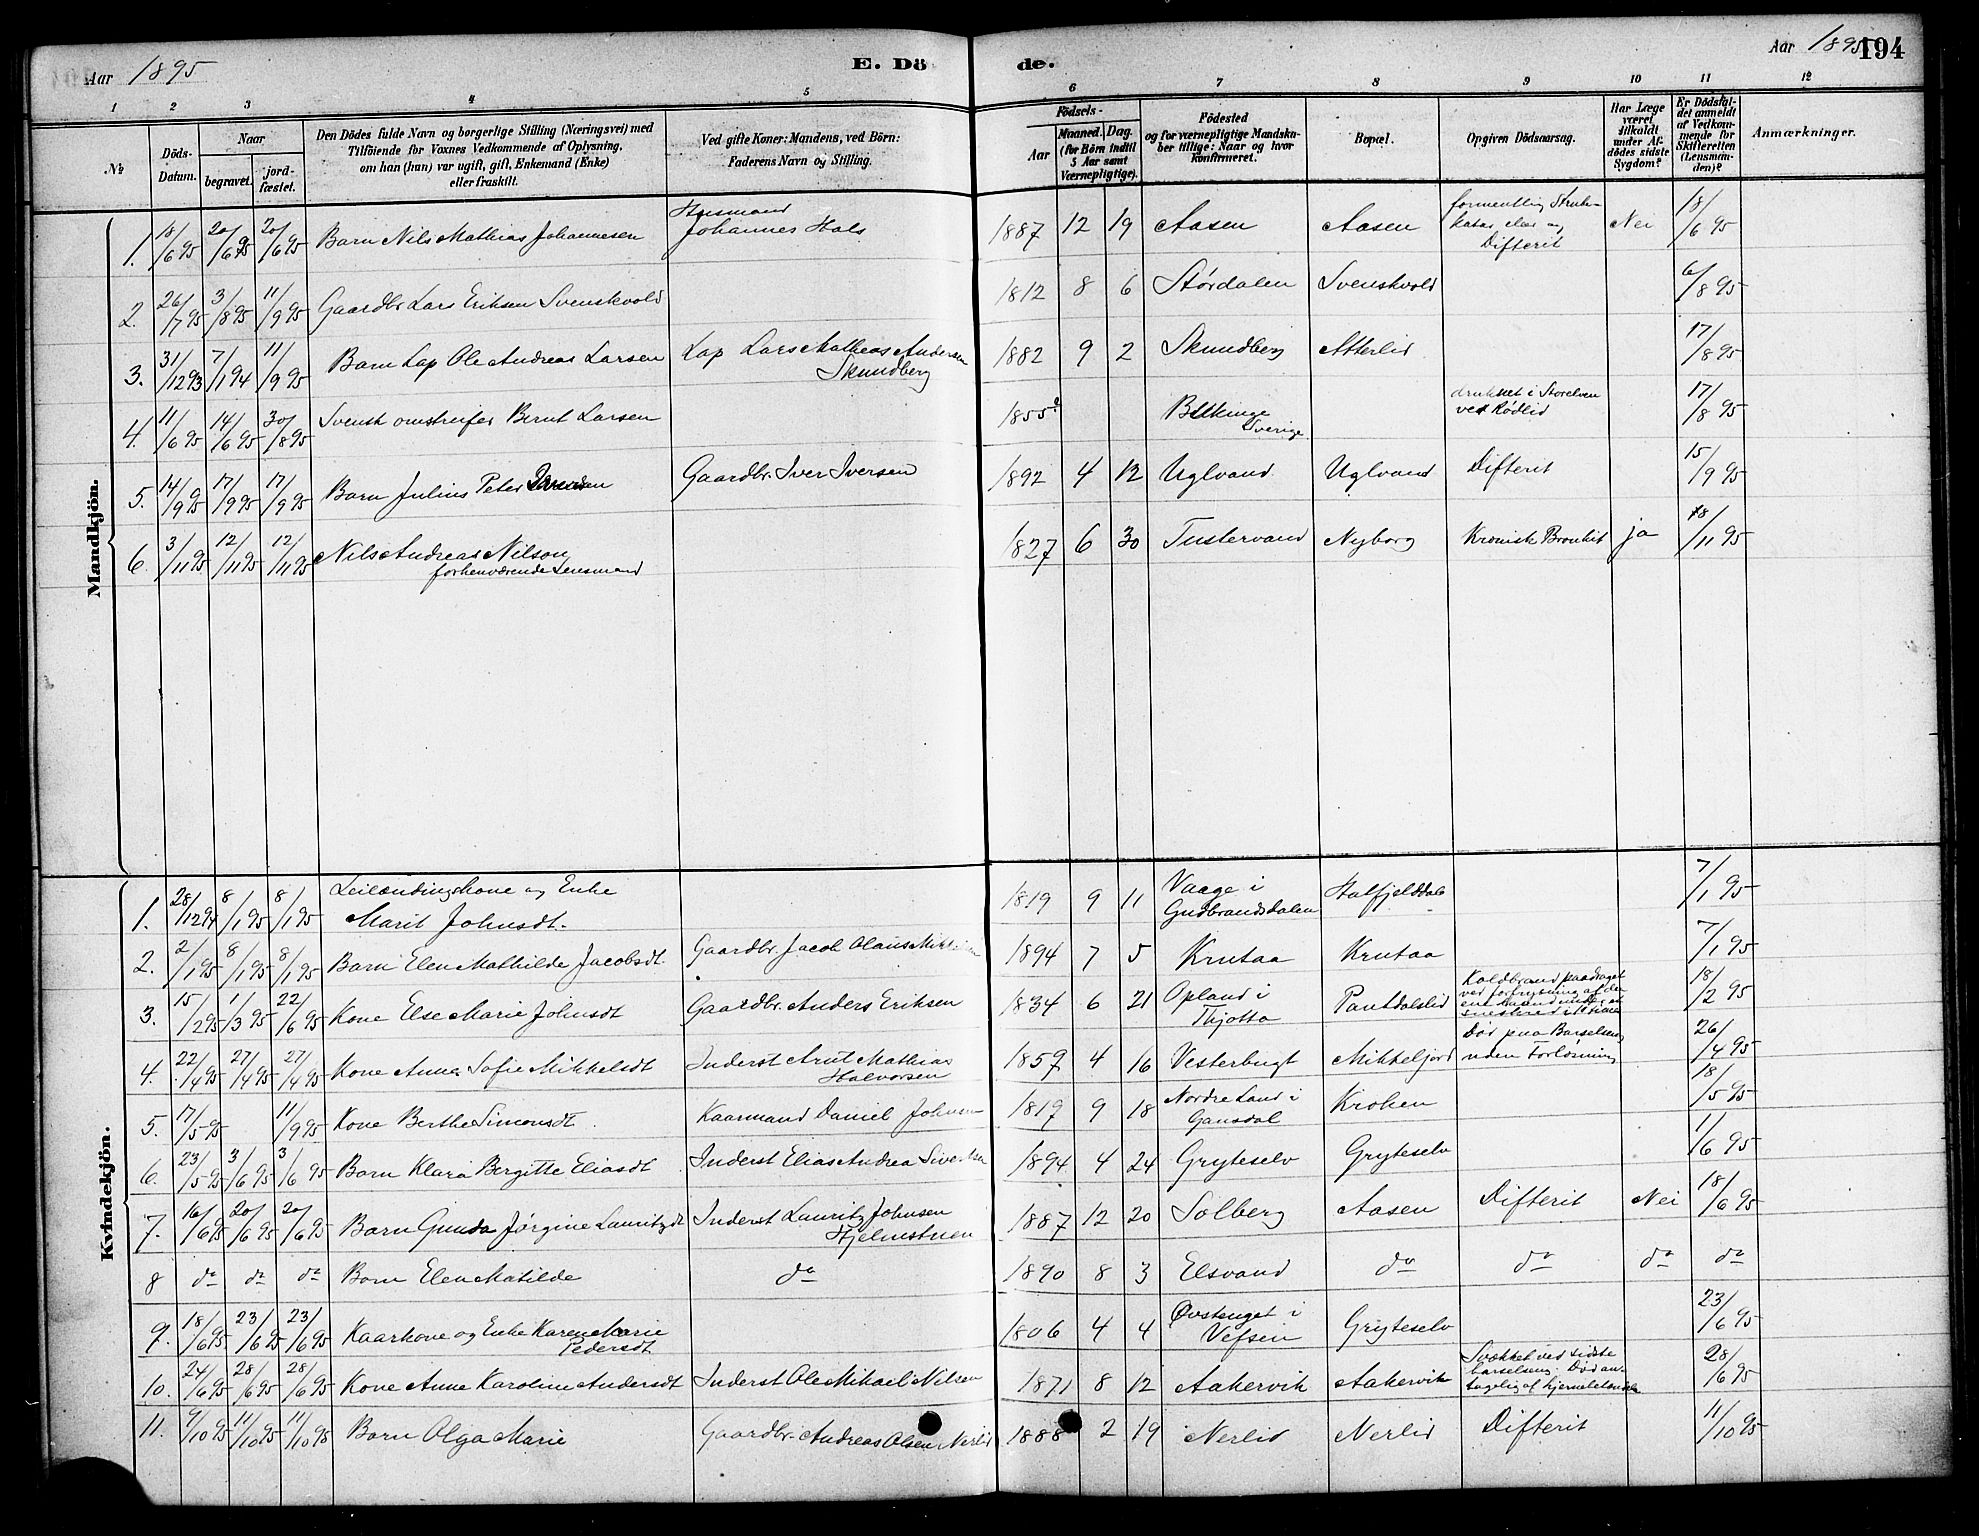 Aar 1895
E. Dö de.
Aar 1895
194
1 2 3 4 5 6 7 8 9 10 11 12
№
Döds-Datum.
Naar
begravet.
jord-fæstet.
Den Dödes fulde Navn og borgerlige Stilling (Næringsvei) med
Tilföiende for Voxnes Vedkommende af Oplysning,
om han (hun) var ugift, gift, Enkemand (Enke)
eller fraskilt.
Ved gifte Koner: Mandens, ved Börn:
Faderens Navn og Stilling.
Födsels-
Aar
Maaned. Dag.
(for Börn indtil
5 Aar samt
Værnepligtige).
Födested
og for værnepligtige Mandska-
ber tillige: Naar og hvor
Konfirmeret.
Bopæl.
Opgiven Dödsaarsag.
Har Læge
været
tilkaldt
under Af-
dödes sidste
Sygdom?
Er Dödsfal-
det anmeldt
af Vedkom-
mende for
Skifteretten
(Lensman-
den)?
Anmærkninger.
Mandkjön.
1. 18/6 95 20/6 95 20/6 95 Barn Nils Mathias Johannesen Husmand Johannes Hals 1887 12 19 Aasen Aasen formentlig Strube- katar eller og Difterit Nei 18/6 95
2. 26/7 95 3/8 95 11/9 95 Gaardbr Lars Eriksen Svenskvold 1812 8 6 Stördalen Svenskvold 6/8 95
3. 31/12 93 7/1 94 11/9 95 Barn Lap Ole Andreas Larsen Lap Lars Mathias Andersen Skundberg 1882 9 2 Skundberg Atterlid 17/8 95
4. 11/6 95 14/6 95 30/8 95 Svensk omstreifer Bernt Larsen 1855? Blekinge Sverige druknet i Storelven ved Rödlid 17/8 95
5. 14/9 95 17/9 95 17/9 95 Barn Julius Peter Iversen Gaardbr. Iver Iversen 1892 4 12 Uglvand Uglvand Difterit 15/9 95
6. 3/11 95 12/11 95 12/11 95 Nils Andreas Nilson forhenværende Lensmand 1827 6 30 Tustervand Nyborg Kronisk Bronkit ja 18/11 95
Kvindekjön.
1. 28/12 94 8/1 95 8/1 95 Leilændingskone og Enke Marit Johnsdt. 1819 9 11 Vaage i Gudbrandsdalen Hatfjelddal 7/1 95
2. 2/1 95 8/1 95 8/1 95 Barn Elen Mathilde Jacobsdt. Gaardbr. Jacob Olaus 1894 7 5 Krutaa Krutaa 7/1 95
3. 15/2 95 1/3 95 22/6 95 Kone Else Marie Johnsdt Gaardbr. Anders Eriksen 1834 6 21 Opland i Thjotta Pantdalslid Koldbrand paadraget ved forfrysning af den ene 18/2 95
4. 22/4 95 27/4 95 27/4 95 Kone Anna Sofie Mikkelsdt Inderst Arnt Mathias Halvorsen 1859 4 16 Vesterbugt Mikkeljord Död paa Barselseng uden Forlösning 26/4 95
5. 17/5 95 11/9 95 Kone Berthe Simonsdt. Kaarmand Daniel Johnsen 1819 9 18 Nordre Land i Gausdal Kroken 18/5 95
6. 23/5 95 3/6 95 3/6 95 Barn Klara Bergitte Eliasdt Inderst Elias Andrea Sivertsen 1894 4 24 Gryteselv Gryteselv 1/6 95
7. 16/6 95 20/6 95 20/6 95 Barn Gunda Jörgine Lauritzdt Inderst Lauritz Johnsen Hjelmstuen 1887 12 20 Solberg Aasen Difterit Nei 18/6 95
8 do do do Barn Elen Matilde do 1890 8 3 Elsvand do do do do
9. 18/6 95 23/6 95 23/6 95 Kaarkone og Enke Karen Marie Pedersdt 1806 4 4 Övstenget i Vefsen Gryteselv 23/6 95
10. 24/6 95 28/6 95 28/6 95 Kone Anne Karoline Andersdt Inderst Ole Mikael Nilsen 1871 8 12 Aakervik Aakervik Svækket ved sidste barselseng. Död an- tagelig af hjernebetændelse 28/6 95
11. 9/10 95 11/10 95 11/10 95 Barn Olga Marie Gaardbr. Andreas Olsen Nerlid 1888 2 19 Nerlid Nerlid Difterit 11/10 95